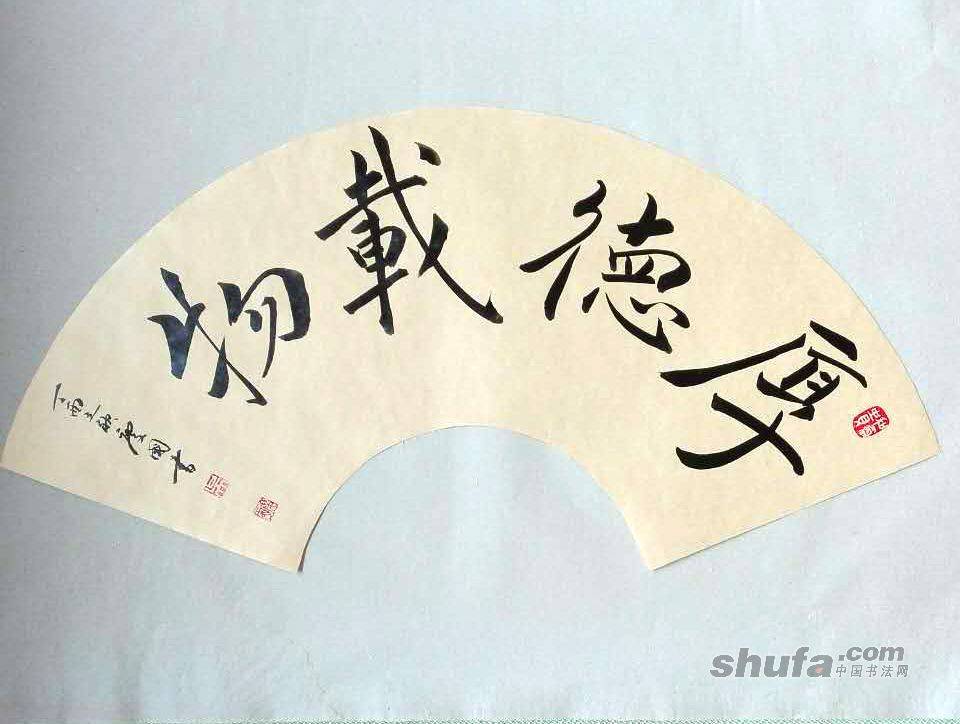 厚德載物
丁酉之秋慶國書
shufa.com
中国书法网